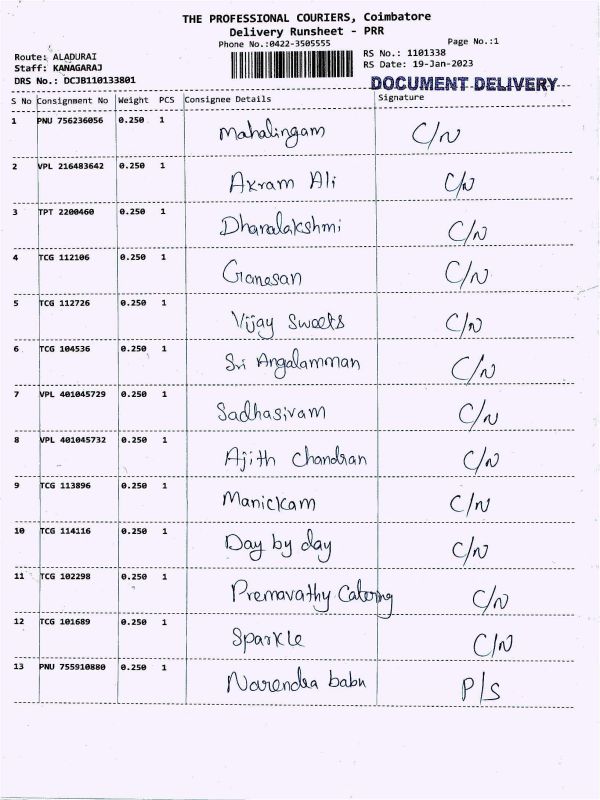 THE PROFESSIONAL COURIERS, Coimbatore
Delivery Runsheet - PRR
Phone No.:0422-3505555
Page No.:1
Route: ALADURAI
RS No.: 1101338
Staff: KANAGARAJ
RS Date: 19-Jan-2023
DRS No.: DCJB110133801
DOCUMENT DELIVERY
S No Consignment No Weight PCS Consignee Details Signature
1 PNU 756236056 0.250 1 Mahalingam C/N
2 VPL 216483642 0.250 1 Akram Ali C/N
3 TPT 2200460 0.250 1 Dhanalakshmi C/N
4 TCG 112106 0.250 1 Ganesan C/N
5 TCG 112726 0.250 1 Vijay Sweets C/N
6 TCG 104536 0.250 1 Sri Angalamman C/N
7 VPL 401045729 0.250 1 Sadhasivam C/N
8 VPL 401045732 0.250 1 Ajith Chandran C/N
9 TCG 113896 0.250 1 Manickam C/N
10 TCG 114116 0.250 1 Day by day C/N
11 TCG 102298 0.250 1 Premavathy Catering C/N
12 TCG 101689 0.250 1 Sparkle C/N
13 PNU 755910880 0.250 1 Narendra babu P/S